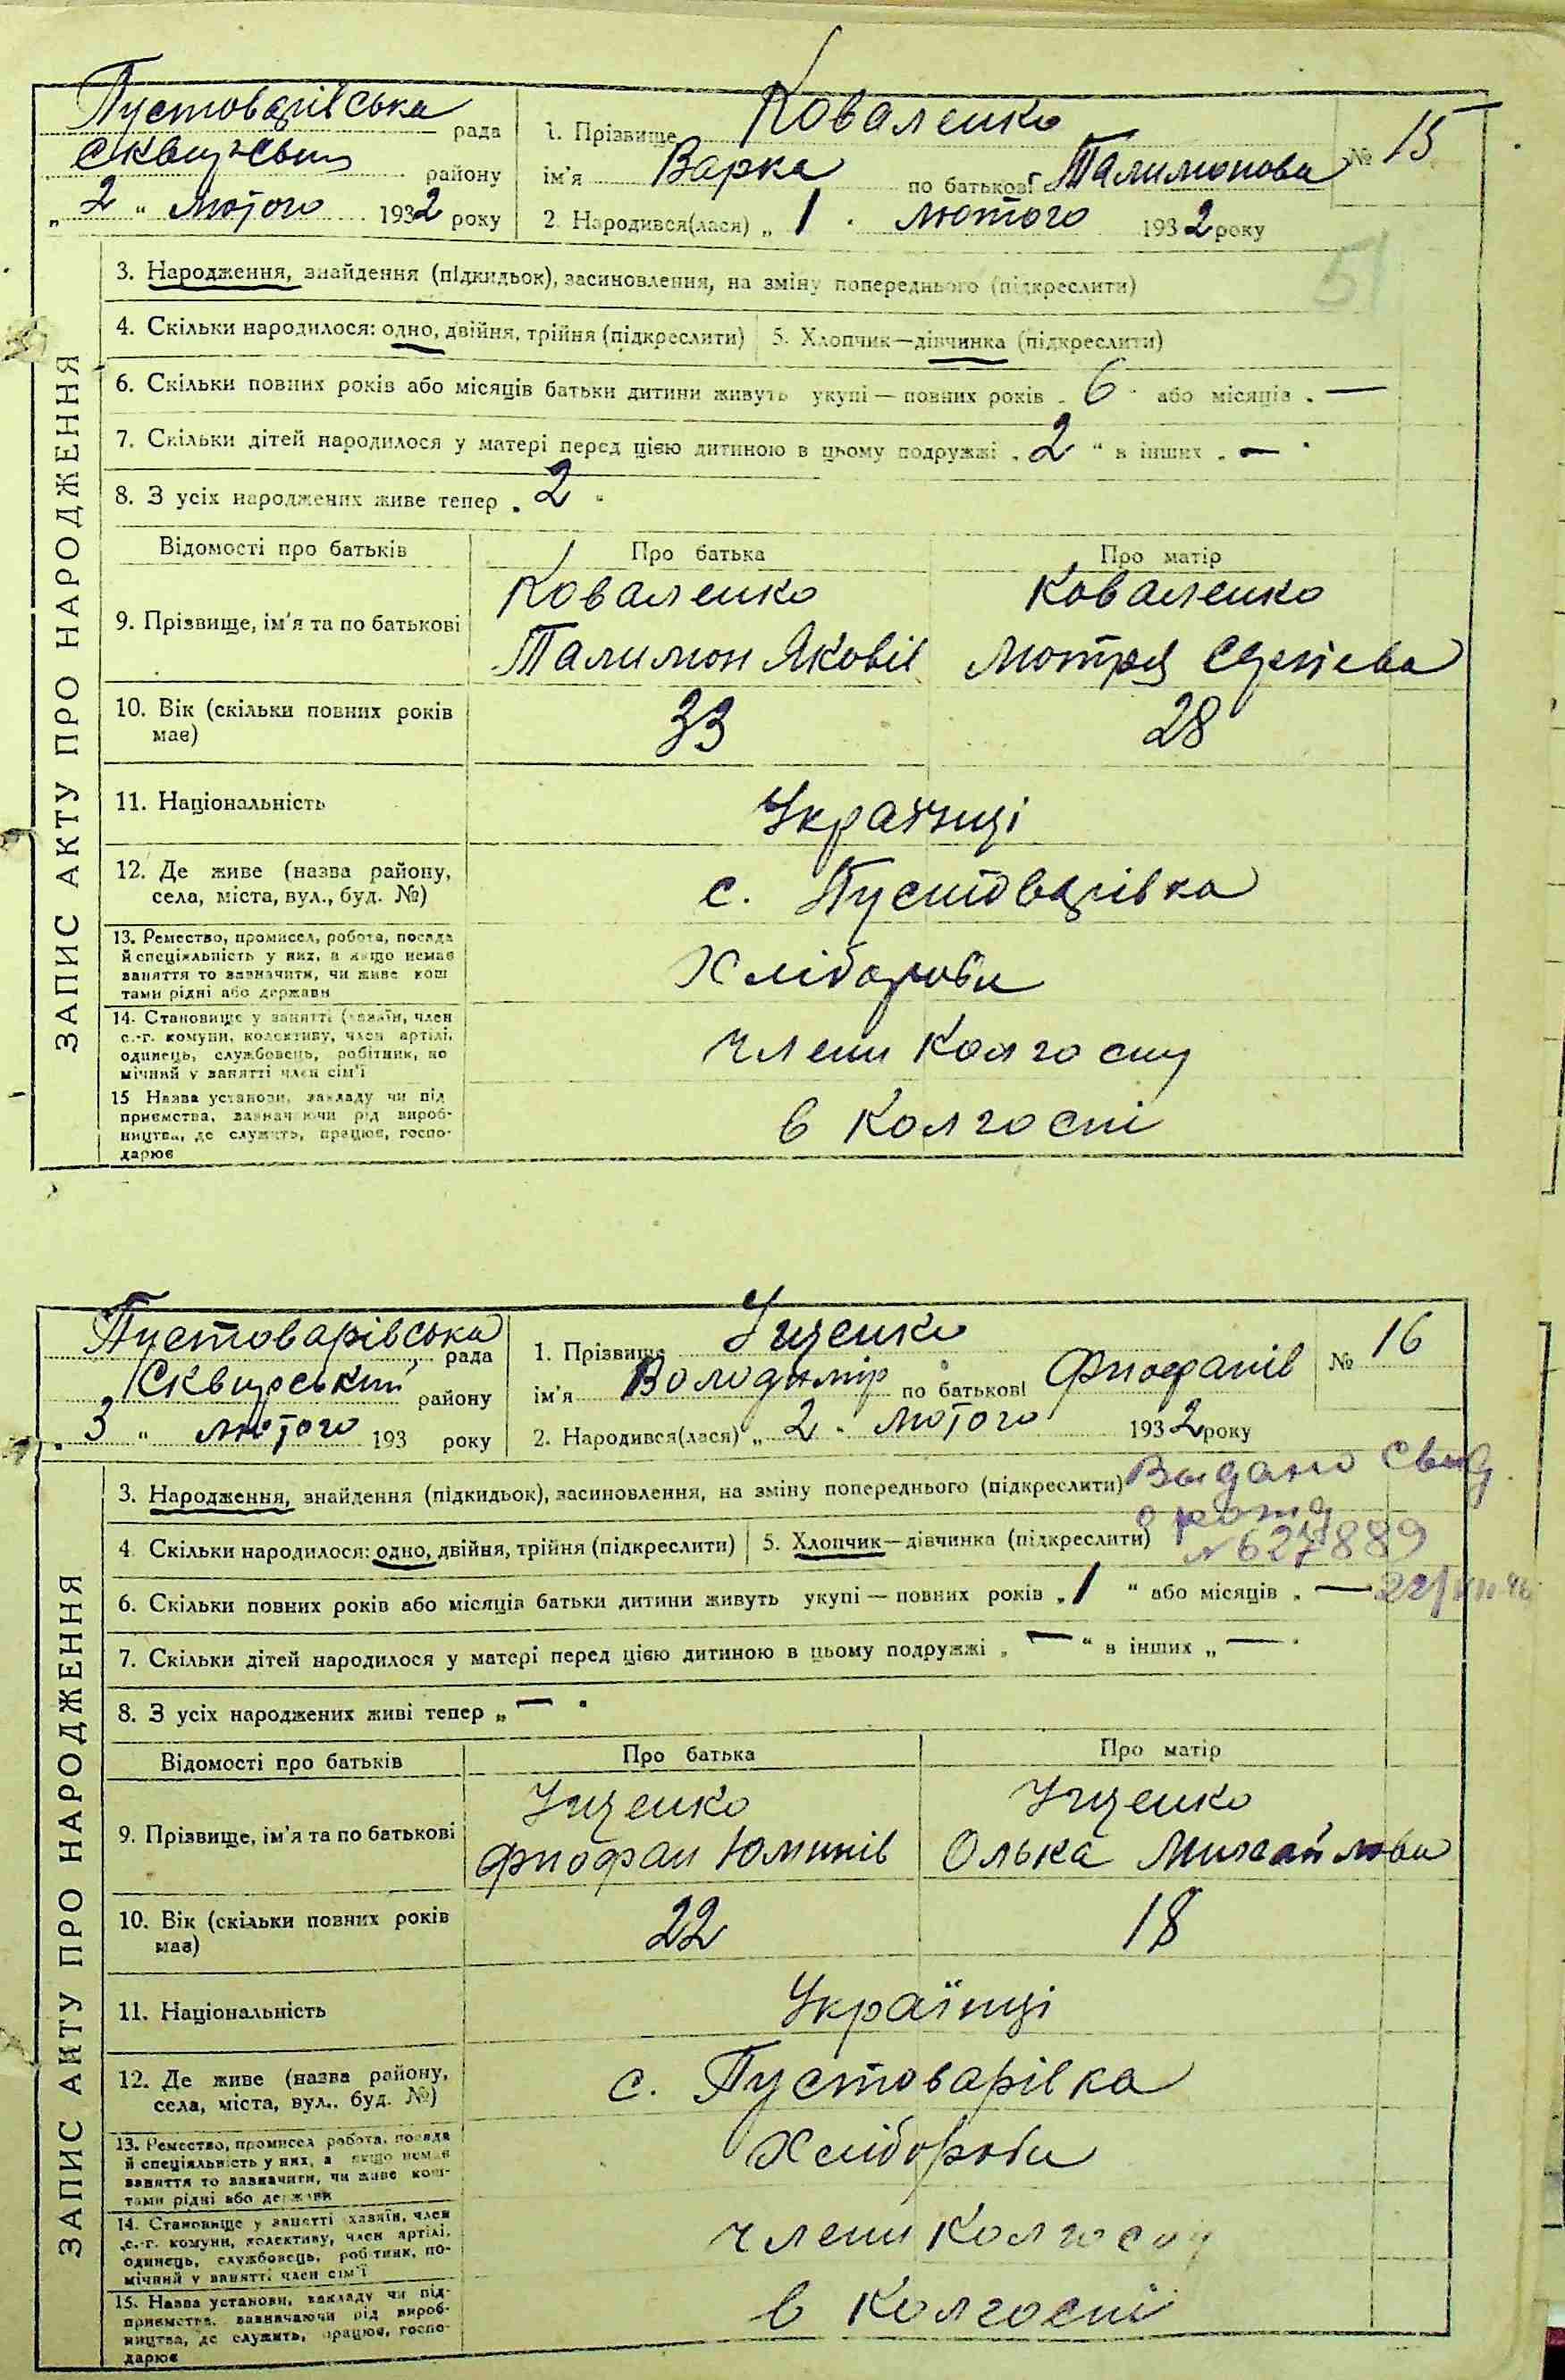 Пустоварівська рада
Сквирський району
„ 2 “ лютого 1932 року
1. Прізвище Коваленко
ім'я Варка по батькові Талимонова
№ 15
2. Народився(лася) „ 1 “ лютого 1932 року
51
ЗАПИС АКТУ ПРО НАРОДЖЕННЯ
3. Народження, знайдення (підкидьок), засиновлення, на зміну попереднього (підкреслити)
4. Скільки народилося: одно, двійня, трійня (підкреслити) 5. Хлопчик—дівчинка (підкреслити)
6. Скільки повних років або місяців батьки дитини живуть укупі — повних років „ 6 “ або місяців „ —
7. Скільки дітей народилося у матері перед цією дитиною в цьому подружжі „ 2 “ в інших „ — “
8. З усіх народжених живе тепер „ 2 “
Відомості про батьків Про батька Про матір
9. Прізвище, ім'я та по батькові
Коваленко Коваленко
Талимон Яковів Мотря Сергієва
10. Вік (скільки повних років
має)
33 28
11. Національність Українці
12. Де живе (назва району,
села, міста, вул., буд. №)
с. Пустоварівка
13. Ремество, промисел, робота, посада
й спеціяльність у них, а якщо немає
заняття то зазначити, чи живе кош
тами рідні або держави
Хлібороби
14. Становище у занятті (хазяїн, член
с.-г. комуни, колективу, член артілі,
одинець, службовець, робітник, по
мічний у занятті член сім'ї
члени колгоспу
15 Назва установи, закладу чи під
приємства, зазначаючи рід вироб-
ництва, де служить, працює, госпо-
дарює
в колгоспі
Пустоварівська рада
Сквирський району
„ 3 “ лютого 193 року
1. Прізвище Іщенко
ім'я Володимір по батькові Фиофанів
№ 16
2. Народився(лася) „ 2 “ лютого 1932 року
ЗАПИС АКТУ ПРО НАРОДЖЕННЯ
3. Народження, знайдення (підкидьок), засиновлення, на зміну попереднього (підкреслити)
Видано свид
о рожд
№ 627889
4. Скільки народилося: одно, двійня, трійня (підкреслити) 5. Хлопчик—дівчинка (підкреслити)
6. Скільки повних років або місяців батьки дитини живуть укупі — повних років „ 1 “ або місяців „ —
7. Скільки дітей народилося у матері перед цією дитиною в цьому подружжі „ — “ в інших „ — “
8. З усіх народжених живі тепер „ — “
Відомості про батьків Про батька Про матір
9. Прізвище, ім'я та по батькові
Іщенко Іщенко
Фиофан Олька Михайлова
10. Вік (скільки повних років
має)
22 18
11. Національність Українці
12. Де живе (назва району,
села, міста, вул., буд. №)
с. Пустоварівка
13. Ремество, промисел робота, посада
й спеціяльність у них, а якщо немає
заняття то зазначити, чи живе кош-
тами рідні або держави
Хлібороби
14. Становище у занятті хазяїн, член
с.-г. комуни, колективу, член артілі,
одинець, службовець, робітник, по-
мічний у занятті член сім'ї
члени колгоспу
15. Назва установи, закладу чи під-
приємства, зазначаючи рід вироб-
ництва, де служить, працює, госпо-
дарює
в колгоспі